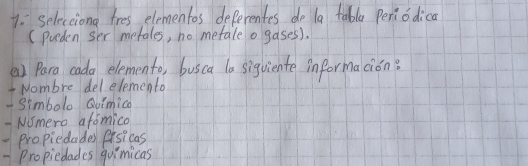 1.- Selecciona tres elementos deferentes de la tabla Periódica
(pueden ser metales, no metale o gases).
a) Para cada elemento, busca la siguiente información:
- Nombre del elemento
- Símbolo Químico
- Número atómico
- Propiedades físicas
- Propiedades químicas